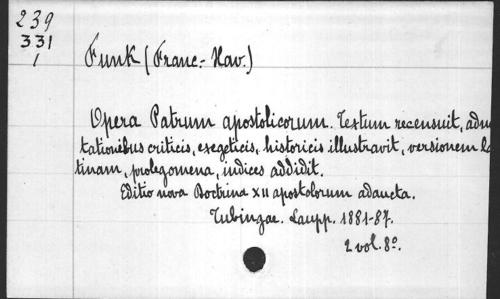 239
331
1
Funk (Franc.-Xav.)
Opera Patrum apostolicorum. Textum recensuit, adno
tationibus criticis, exegeticis, historicis illustravit, versionem la
tinam, prolegomena, indices addidit.
Editio nova Doctrina XII apostolorum adaucta.
Tubingae. Laupp. 1881-87.
2 vol. 8º.